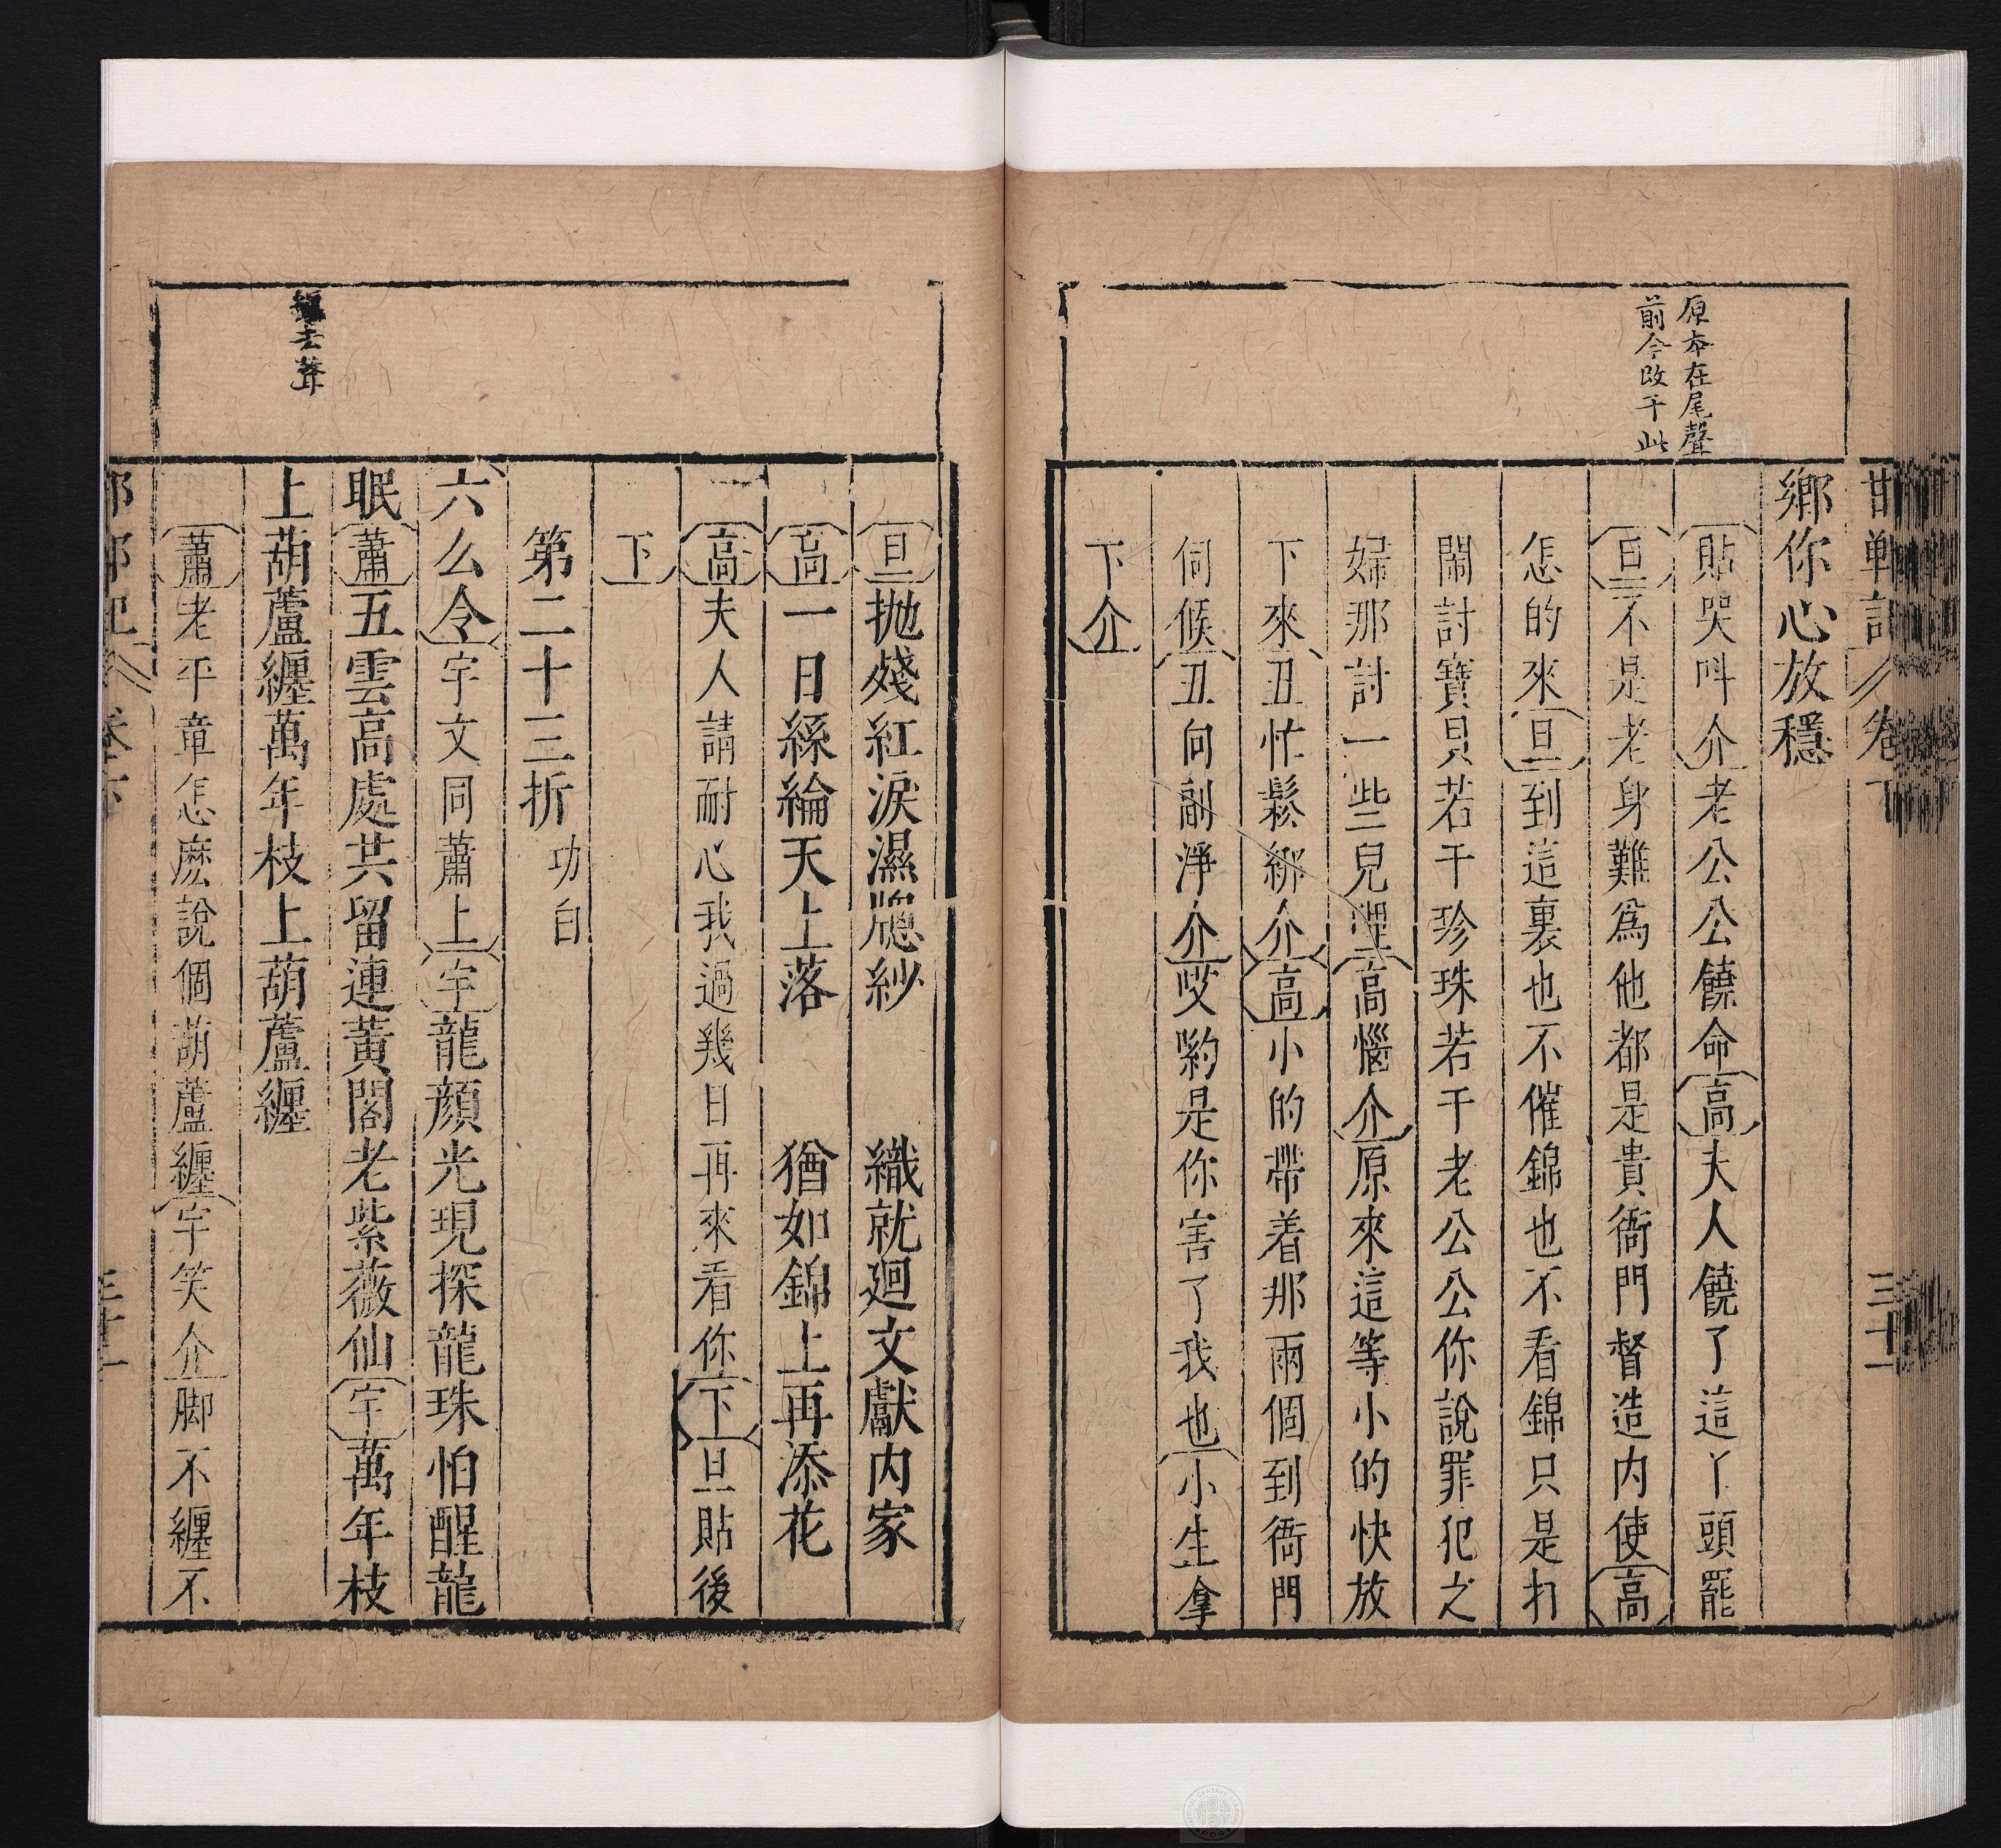 邯鄲記 卷下 三十一
原本在尾聲
前今改于此
鄉你心放穩
貼哭呌介老公公饒命高夫人饒了這丫頭罷
旦不是老身難爲他都是貴衙門督造内使高
怎的來旦到這裏也不催錦也不看錦只是打
閙討寶貝若干珍珠若干老公公你說罪犯之
婦那討一些兒高惱介原來這等小的快放
下來丑忙鬆綁介高小的帶着那兩個到衙門
伺候丑向副淨介哎喲是你害了我也小生拿
下介
旦抛殘紅淚濕牕紗 織就廻文獻内家
高一日絲綸天上落 猶如錦上再添花
高夫人請耐心我過幾日再來看你下旦貼後
下
第二十三折 功白
六么令宇文同蕭上宇龍顔光現探龍珠怕醒龍
去聲
眠蕭五雲高處共留連黃閣老紫薇仙宇萬年枝
上葫蘆纏萬年枝上葫蘆纏
蕭老平章怎麽說個葫蘆纏宇笑介脚不纏不